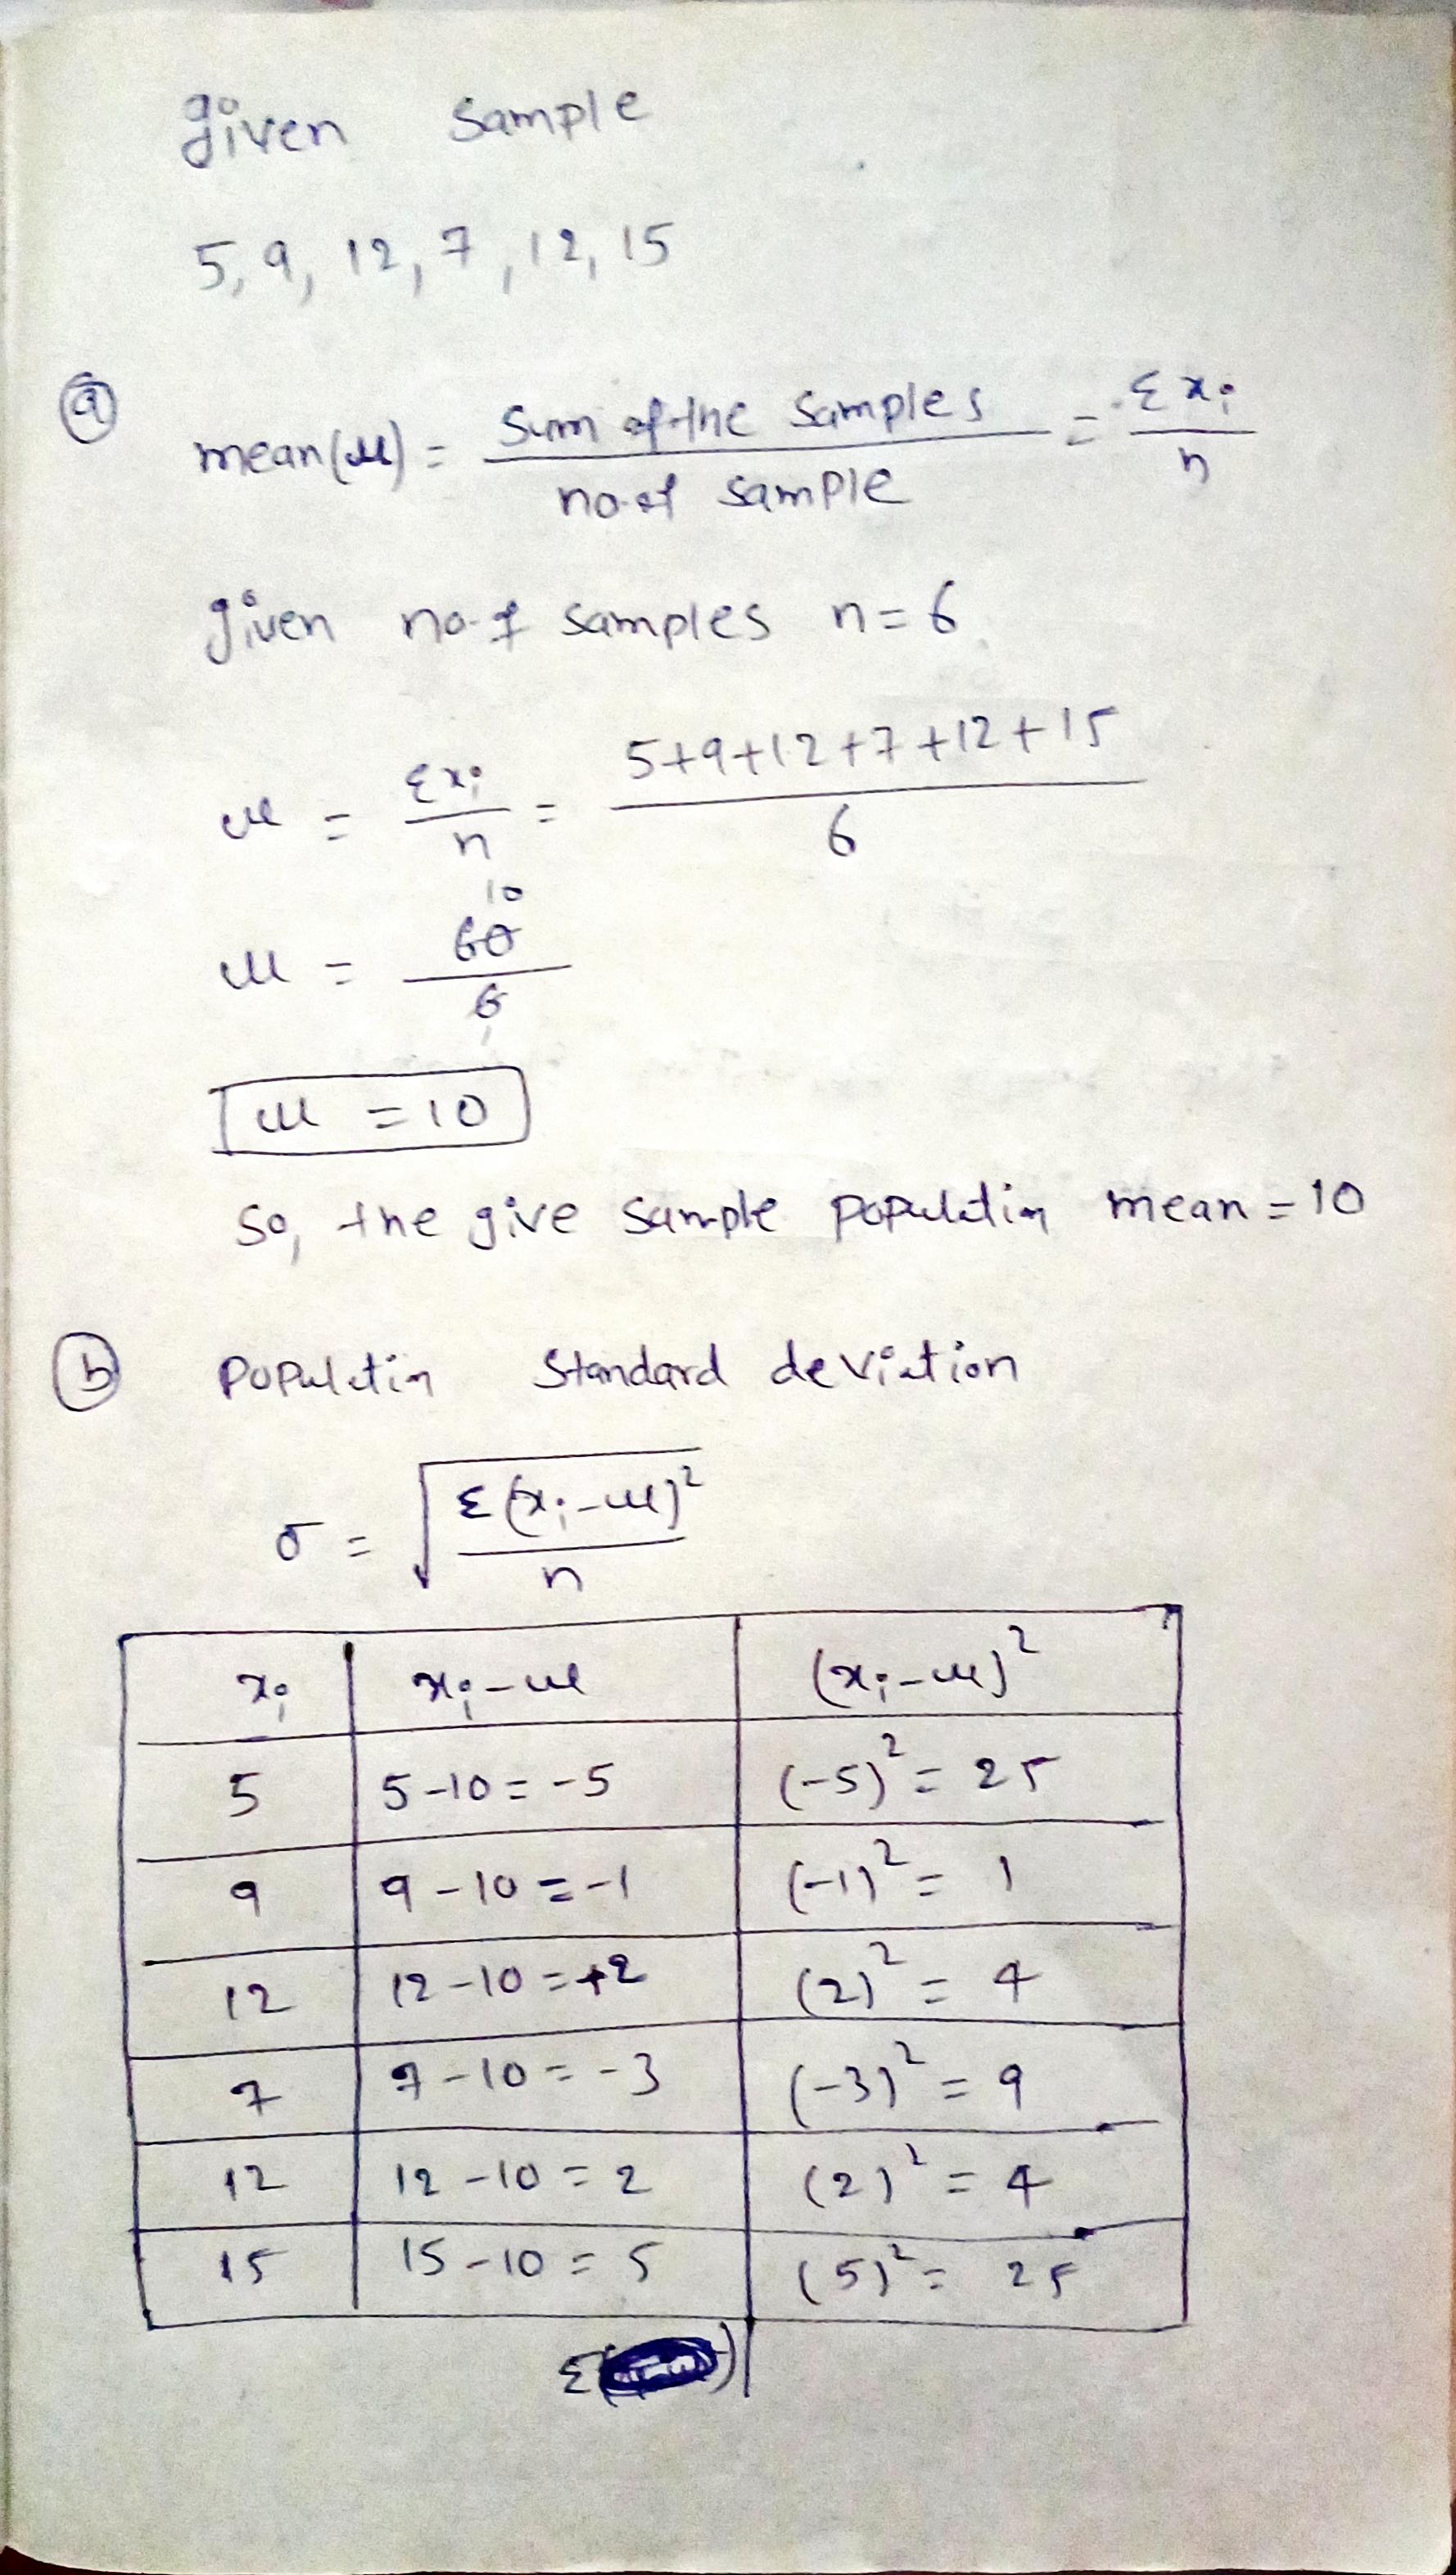 given sample
5, 9, 12, 7, 12, 15
(a)
mean(μ) = sum of the samples / no. of sample = Σxi / n
given no. of samples n = 6
μ = Σxi / n = 5+9+12+7+12+15 / 6
10
μ = 60 / 6
1
μ = 10
so, the give sample populatin mean = 10
(b) populatin standard deviation
σ = √(Σ(xi-μ)² / n)
xi xi-μ (xi-μ)²
5 5-10=-5 (-5)² = 25
9 9-10=-1 (-1)² = 1
12 12-10=+2 (2)² = 4
7 7-10=-3 (-3)² = 9
12 12-10=2 (2)² = 4
15 15-10=5 (5)² = 25
Σ( )